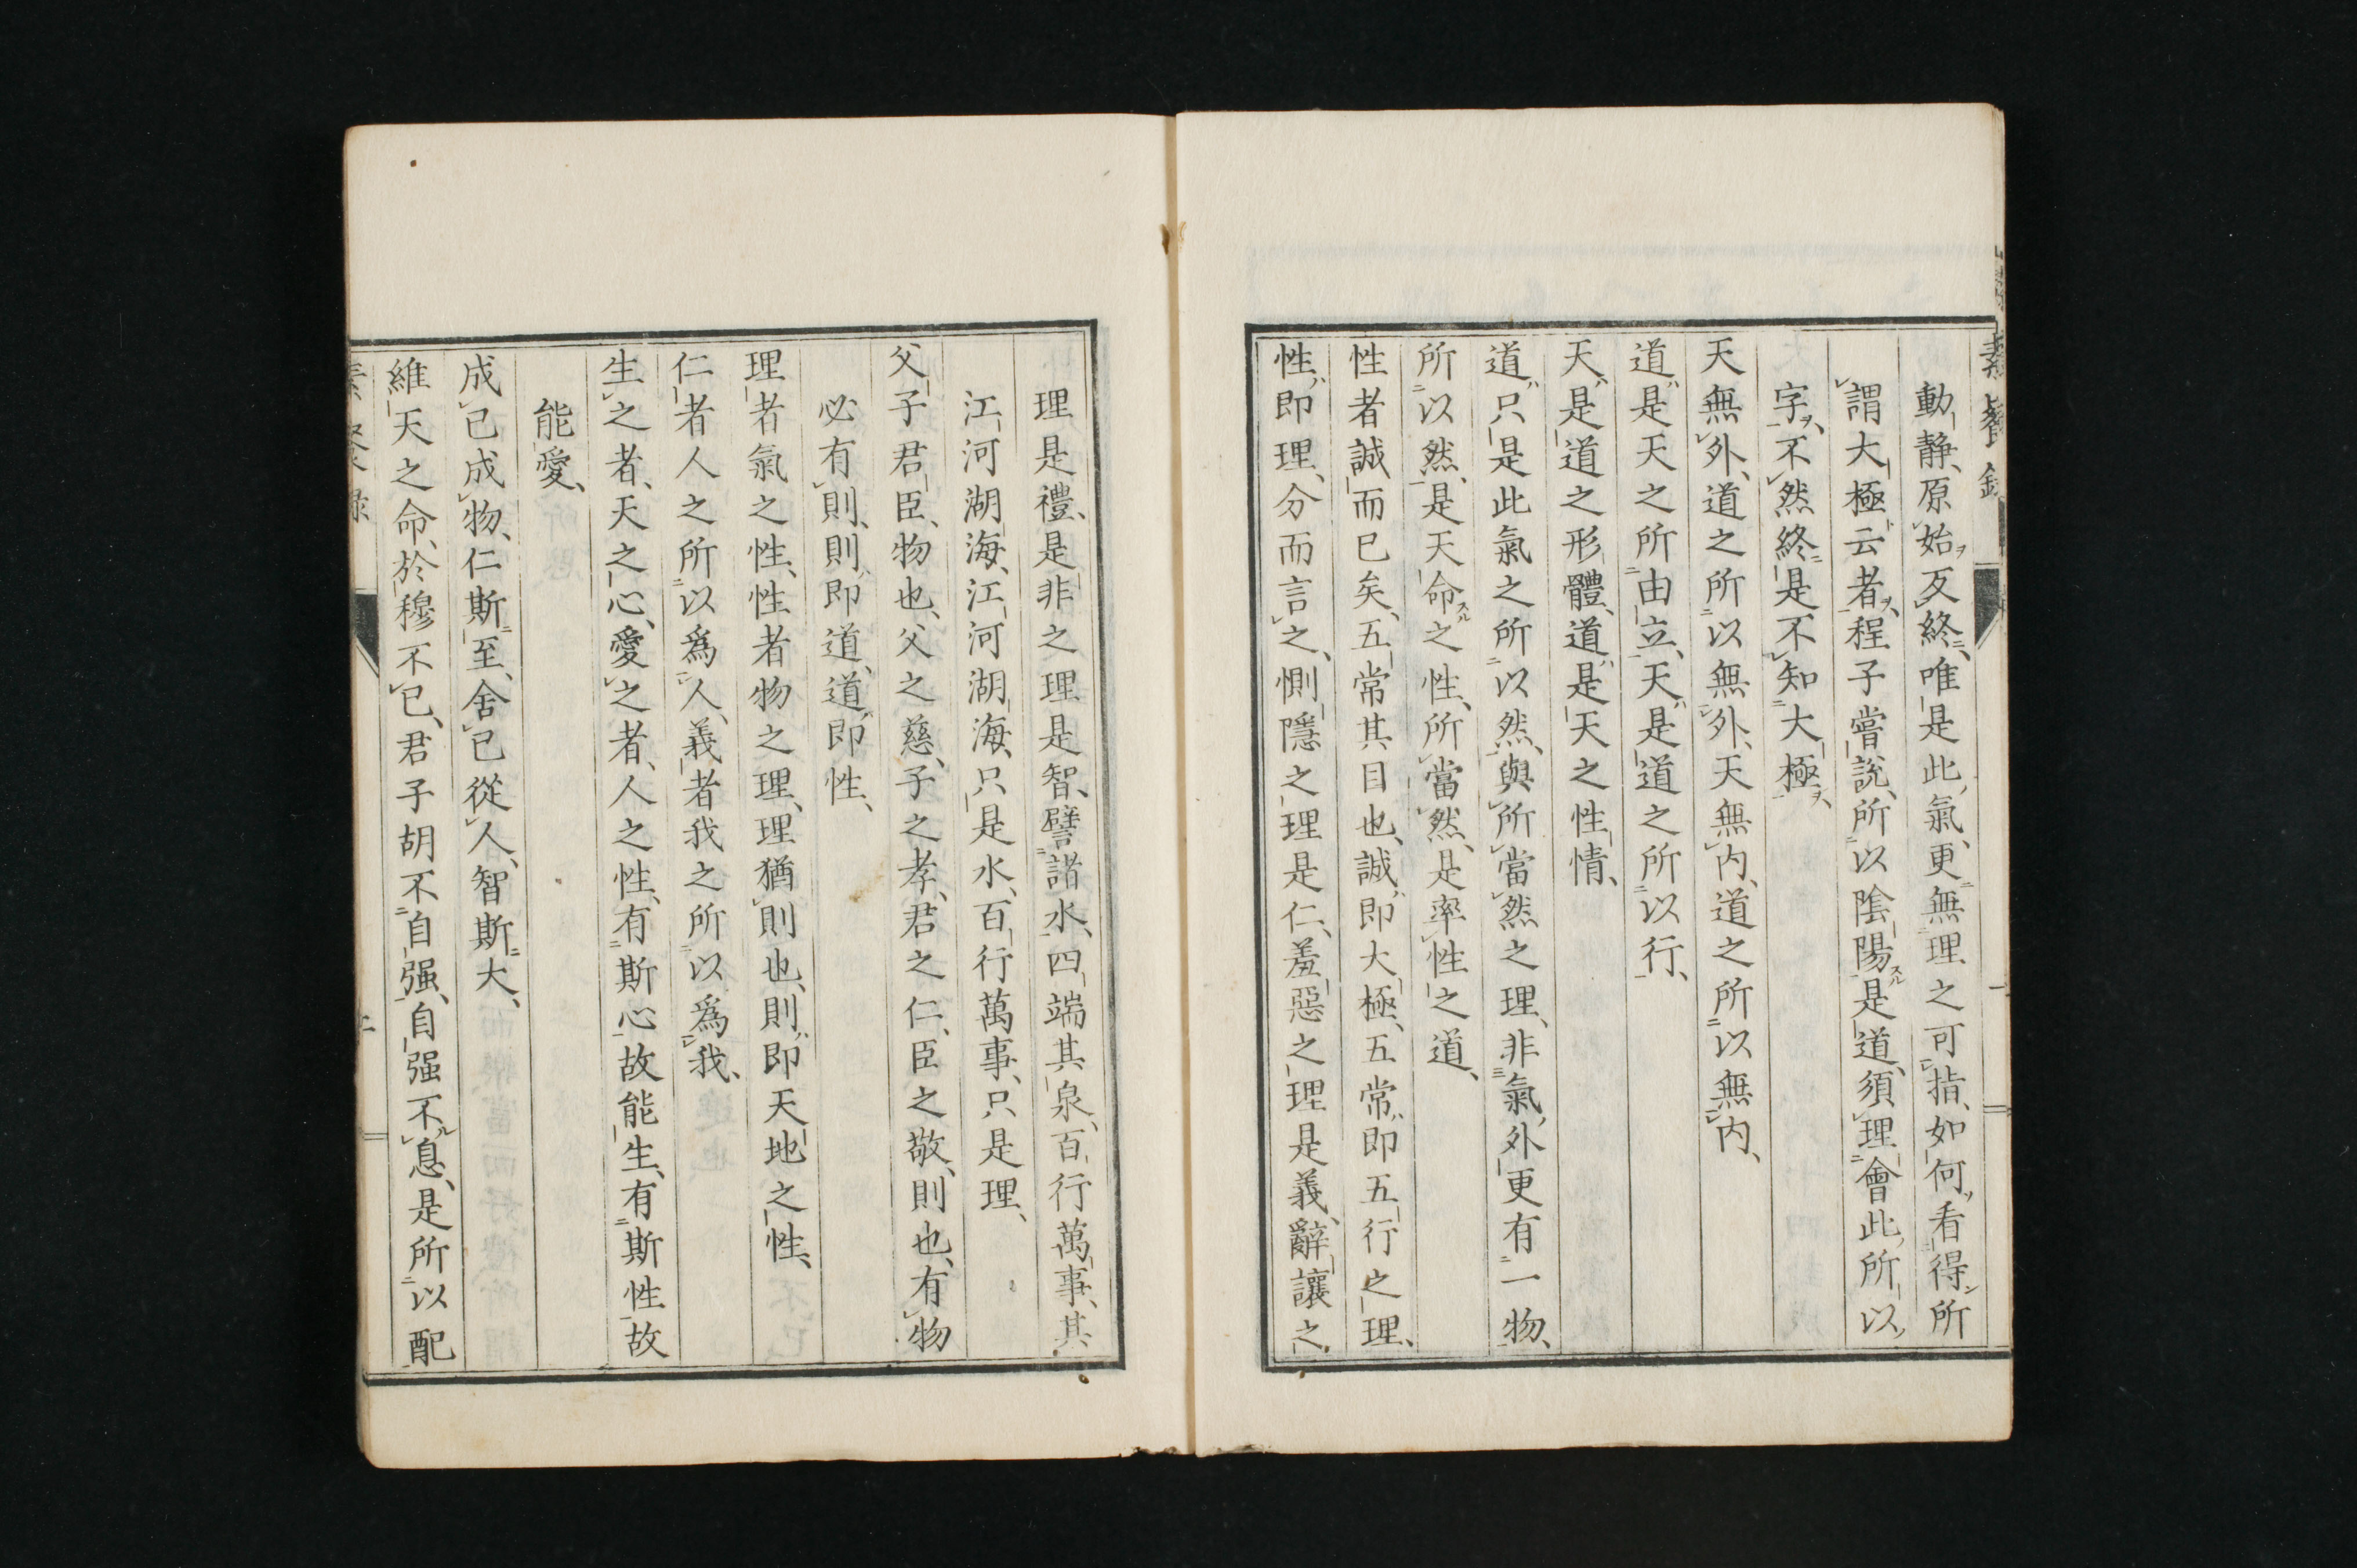 動靜、原始反終、唯是此氣、更無理之可指、如何看得所
謂大極云者、程子嘗說、所以陰陽是道、須理會此所以
字、不然終是不知大極、
天無外、道之所以無外、天無內、道之所以無內、
道是天之所由立、天是道之所以行、
天是道之形體、道是天之性情、
道只是此氣之所以然、與所當然之理、非氣外更有一物、
所以然、是天命之性、所當然、是率性之道、
性者誠而已矣、五常其目也、誠即大極、五常即五行之理、
性即理、分而言之、惻隱之理是仁、羞惡之理是義、辭讓之
理是禮、是非之理是智、譬諸水、四端其泉、百行萬事、其
江河湖海、江河湖海、只是水、百行萬事、只是理、
父子君臣、物也、父之慈、子之孝、君之仁、臣之敬、則也、有物
必有則、則即道、道即性、
理者氣之性、性者物之理、理猶則也、則即天地之性、
仁者人之所以爲人、義者我之所以爲我、
生之者、天之心、愛之者、人之性、有斯心故能生、有斯性故
能愛、
成己成物、仁斯至、舍己從人、智斯大、
維天之命、於穆不已、君子胡不自强、自强不息、是所以配